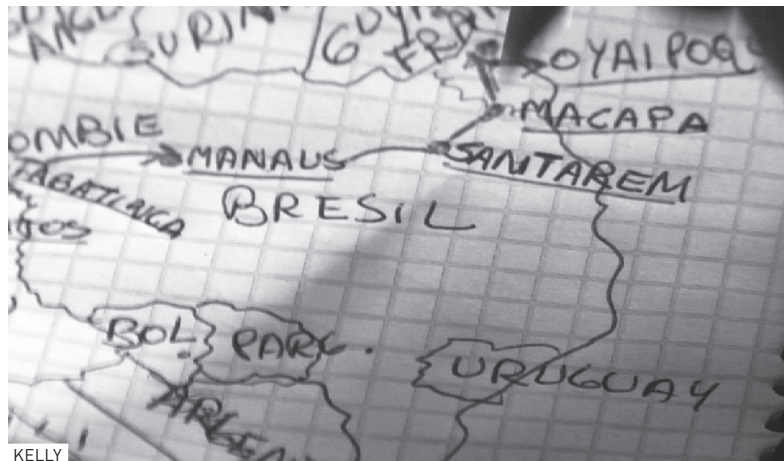 SURIN
GUY
FRA
OYAIPOQ
MACAPA
OMBIE
MANAUS
SANTAREM
TABATINGA
BRESIL
BOL
PARG.
URUGUAY
ARGEN
KELLY